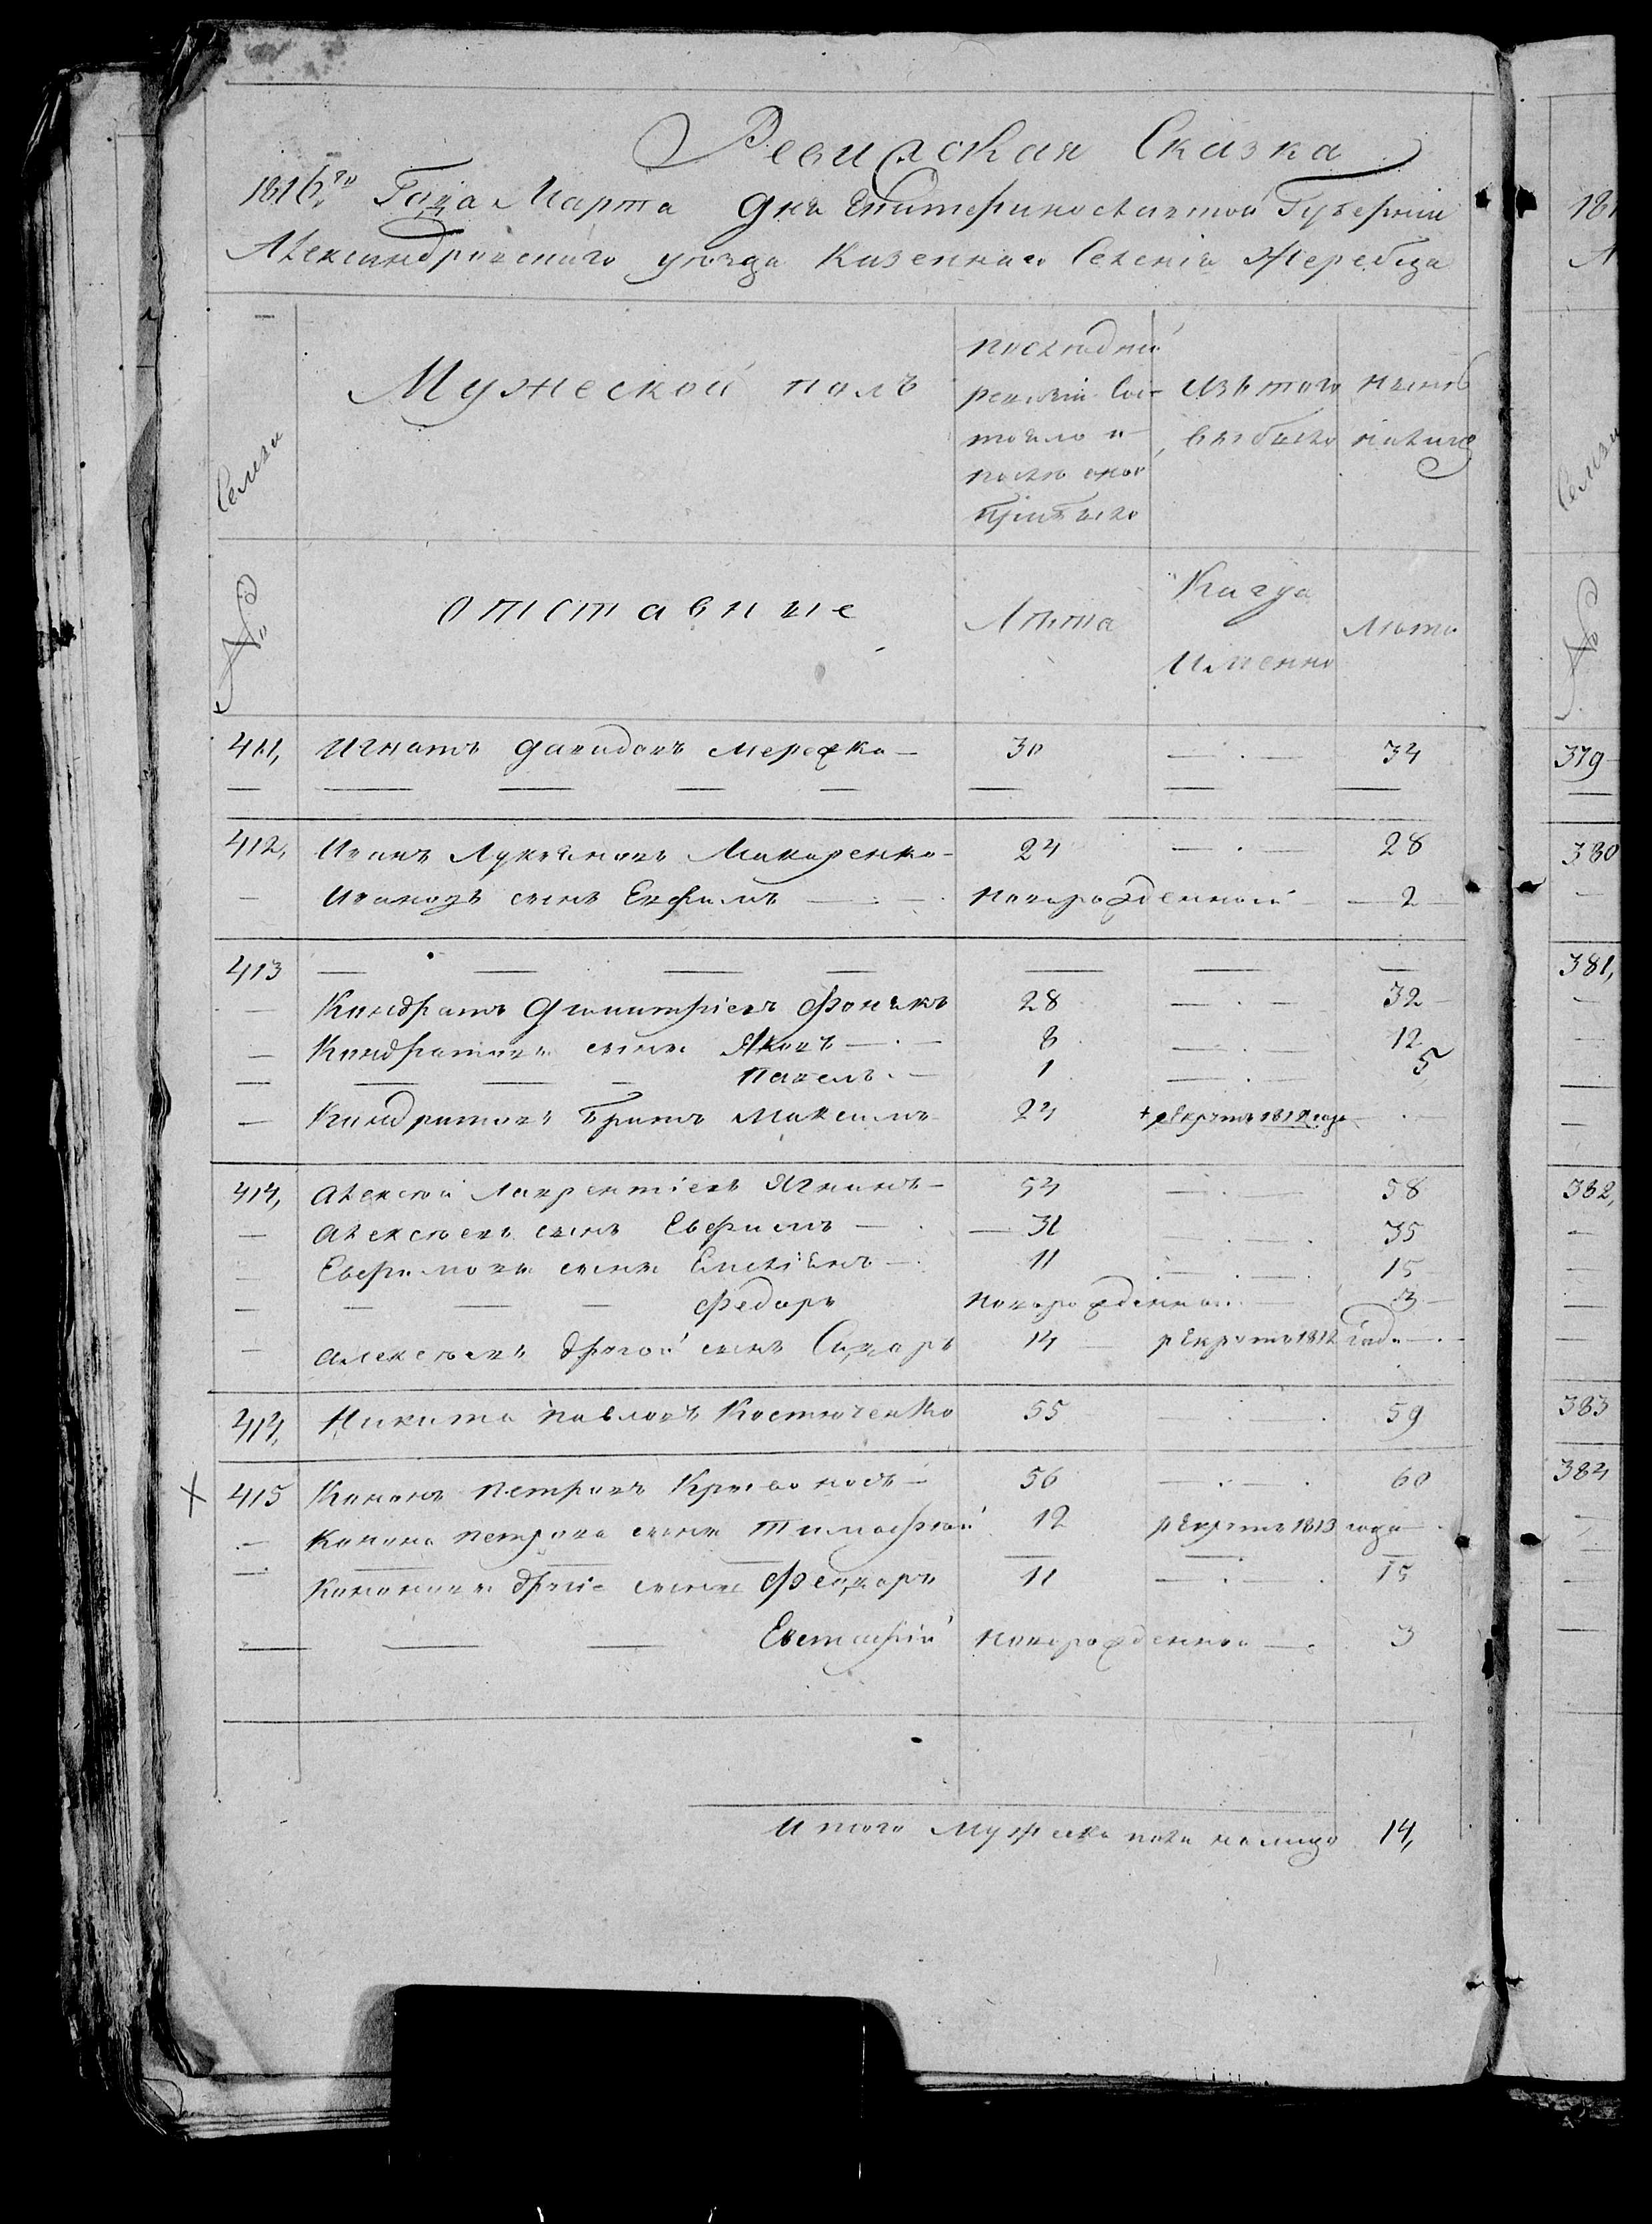 Ревизская Сказка
1816го Года Марта дня Екатеринославской Губернии
Александровского уезда Казенного Селения Жеребца
Семьи
Мужеской полъ
последней
ревизии сос-
тояло и
после оной
прибыло
Изъ того
выбыло
ныне
налицо
№
отставные
Лѣта
Когда
именно
Лѣта
411, Игнатъ Давидовъ Мережка — 30 — 34
412, Иванъ Лукьяновъ Макаренко — 24 — 28
Ивановъ сынъ Евфимъ — новорожденной — 2
413
Кондратъ Дмитріевъ Фоцакъ 28 — 32
Кондратовы сыны Яковъ — 8 — 12
Павелъ — 1 — 5
Кондратовъ братъ Максимъ 24 рекрутъ 1812 года
414, Алексей Лаврентіевъ Ягнинъ — 54 — 58
Алексѣевъ сынъ Евфимъ — 31 — 35
Евфимовы сыны Емельянъ — 11 — 15
Федоръ новорожденной — 3
Алексѣевъ другой сынъ Сидоръ 14 рекрутъ 1812 года
414, Никита Павловъ Костюченко 55 — 59
× 415 Кононъ Петровъ Кривоносъ — 56 — 60
Конона Петрова сыны Тимофѣй 12 рекрутъ 1813 года
Кононовы другіе сыны Федоръ 11 — 15
Евстафій новорожденной — 3
Итого мужеска пола налицо 14,
181
А
Семьи
№
379
380
381,
382,
383
384